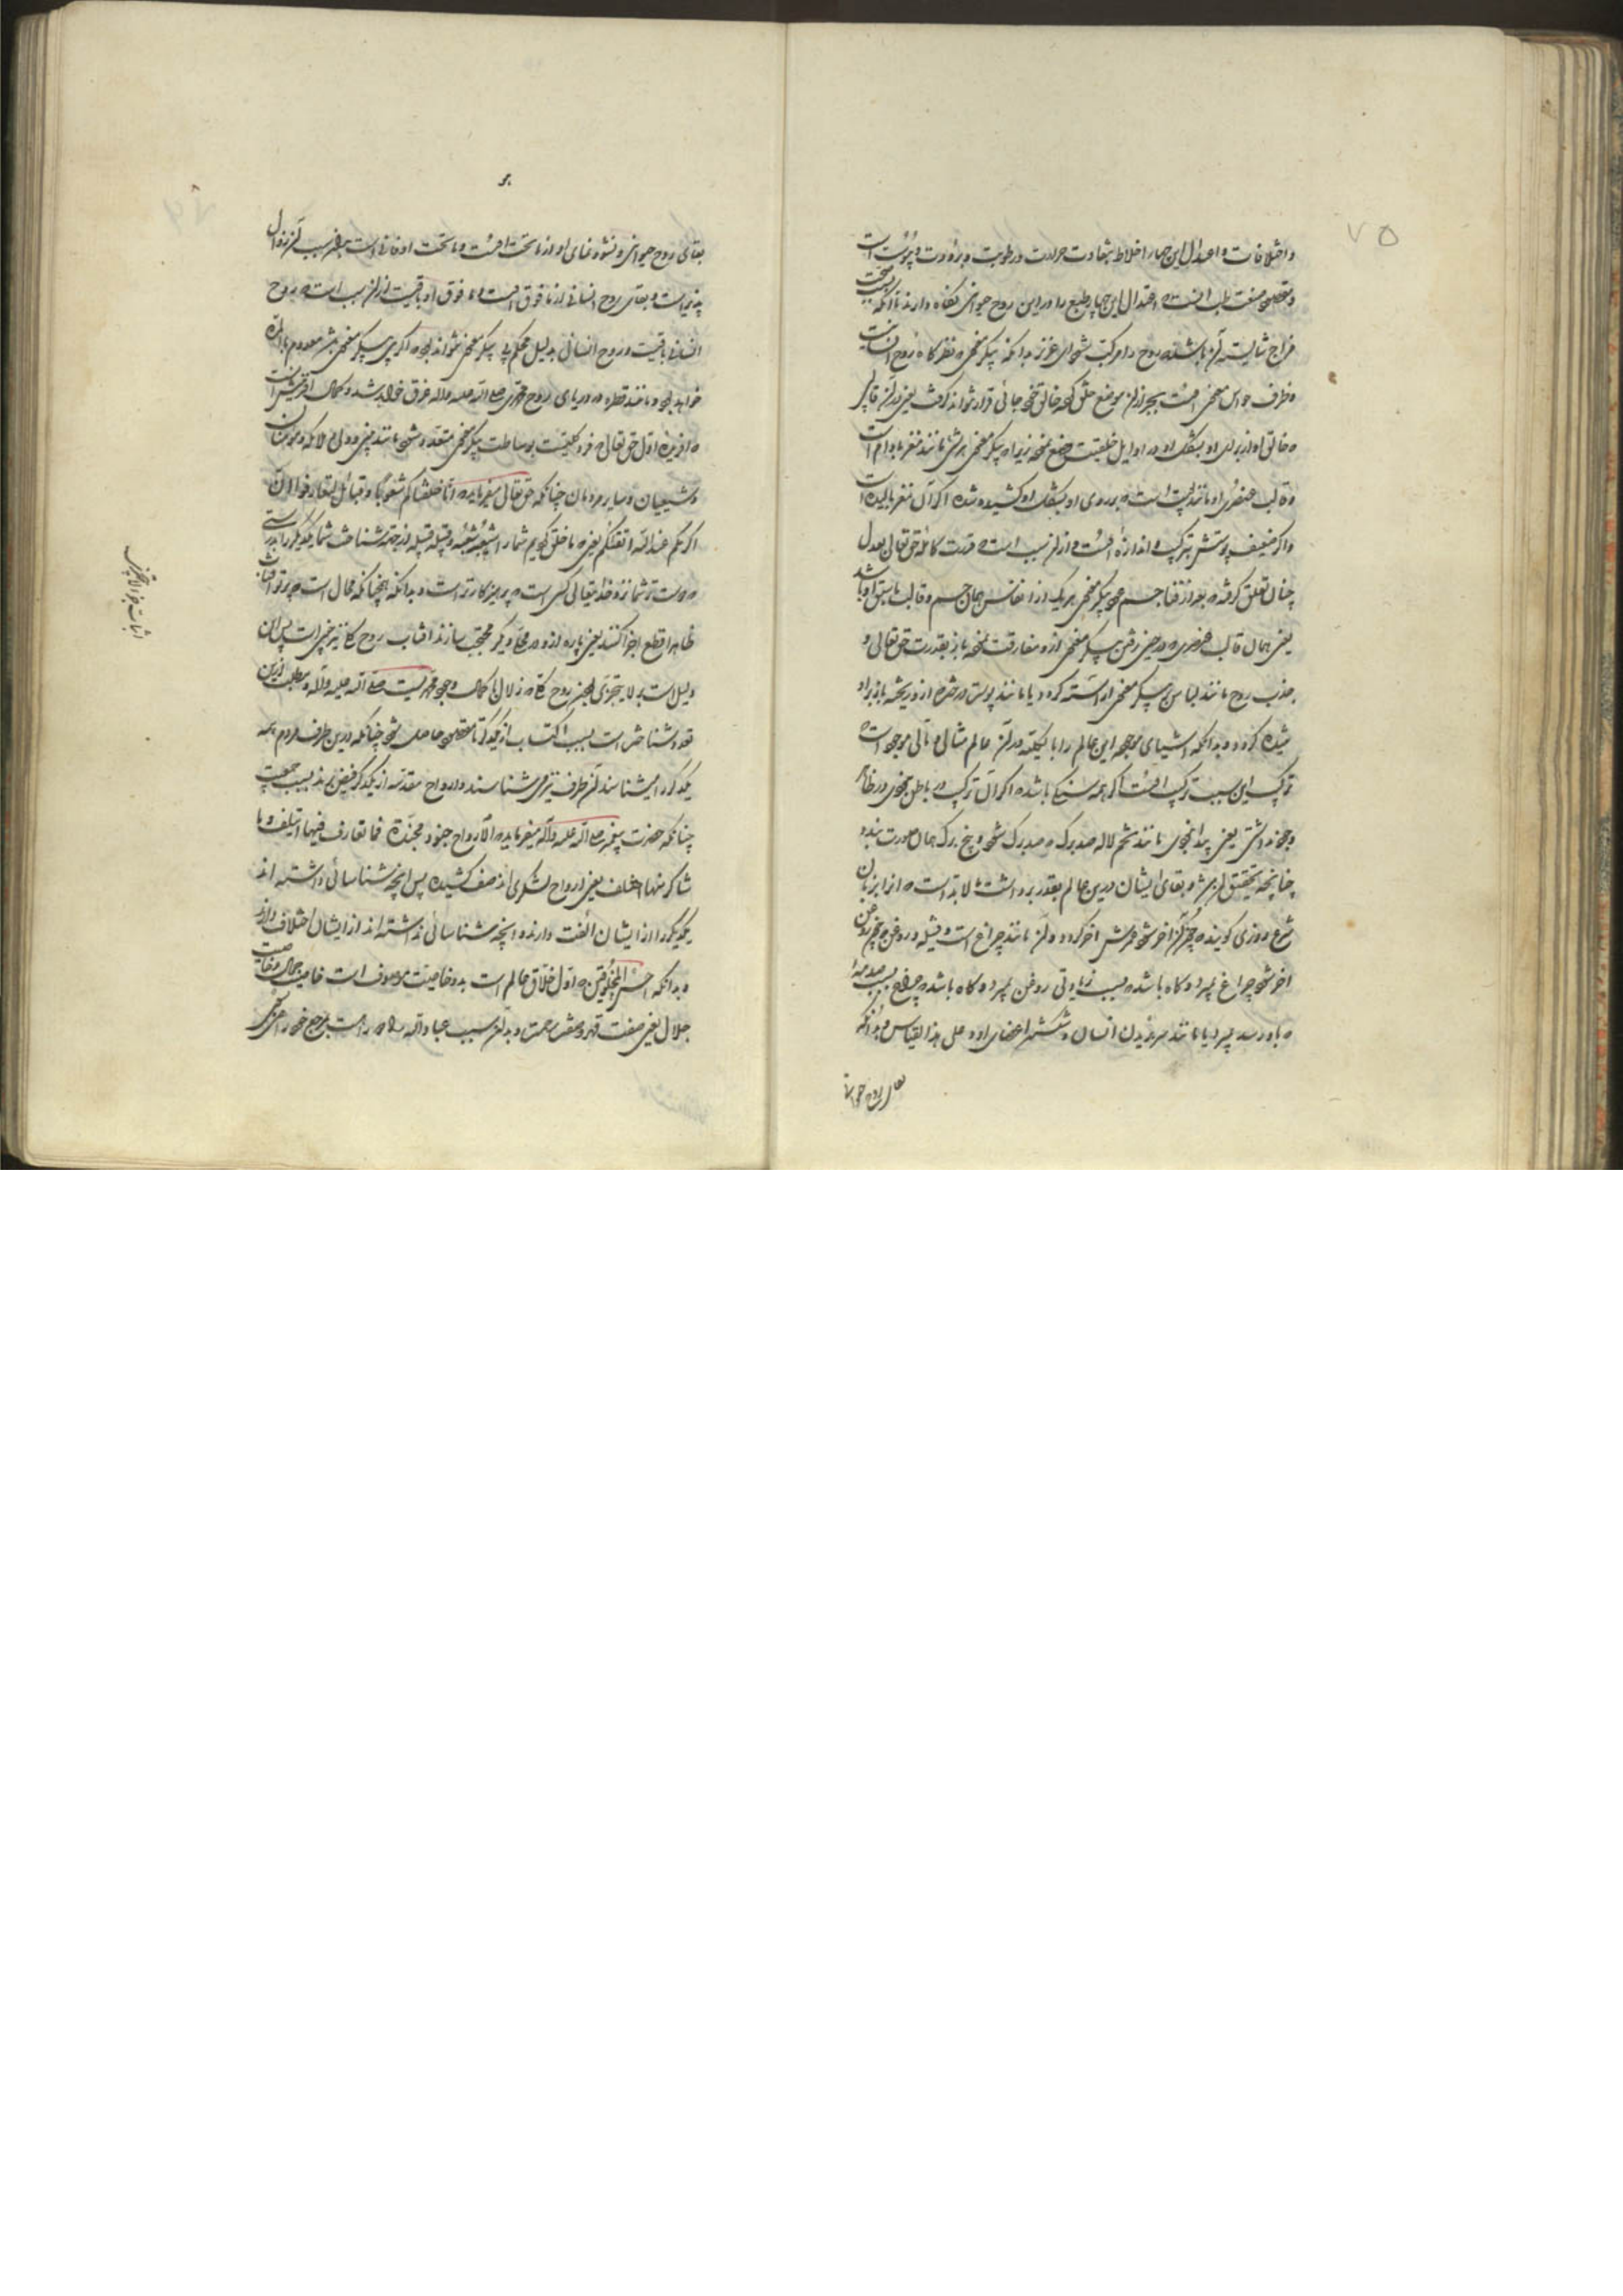 ۷۵
و اختلافات و اعتدال این چهار اخلاط بتفاوت حرارت و رطوبت و برودت و یبوست است
و مقصود صنعت طب آنست که اعتدال این چهار طبع را در این روح حیوانی نگاه دارند تا آنکه بسبب صحت
مزاج شایسته آن باشد که روح را مرکب شود ای عزیز بدانکه پیکر معنوی که نظرگاه روح انسانیت
و ظرف حواس معنوی است بجز از آن موضع خلق که خالق خود جائی قرار نتواند گرفت یعنی در آن قالبی
که خالق او از برای او بشکل او در اوایل خلقیت وضع نموده زیرا که پیکر معنوی هر شیء مانند مغز بادام است
و قالب عنصری او مانند پوست است که بر روی او بشکل او کشیده شده اگر آن مغز بالیده است
و اگر ضعیف پوستش بترکیب و اندازه آنست و از این سبب است که قدرت کامله حق تعالی بعدل
چنان تعلق گرفته که بعد از فنا جسم هر پیکر معنوی هر یک از انفاس همان جسم و قالب ما سبق او باشد
یعنی همان قالب عنصری که در حین رفتن پیکر معنوی ازو مفارقت نموده باز بقدرت حق تعالی و
جذب روح مانند لباس بر پیکر معنوی آراسته گردد یا مانند پوست درخت که ازو ریخته باز بر او
پوشیده گردد و بدانکه اشیای موجود این عالم را بالکلیه در آن عالم مثال و مآلی موجود است
ترکیب این بسبب ترکیب آنست اگر همه سنگ باشد که اگر آن ترکیب در باطن نبودی در ظاهر
وجود نداشتی یعنی پیدا نبودی مانند تخم لاله صد برگ که صد برگ شود و پنج برگ همان صورت بندد
چنانچه تحقیق هر شیء و بقای ایشان درین عالم بقدر برداشت مالابد است که آنرا بزبان
شرع روزی گویند که چون آن آخر شود عمرش آخر گردد و آن مانند چراغ است و فتیله و روغن که چون روغن
آخر شود چراغ بمیرد و گاه باشد که بسبب زیادتی روغن بمیرد و گاه باشد که چراغ بسبب صدمه
که باو رسد بمیرد یا مانند سر بریدن انسان و شکستن اعضای او و علی هذا القیاس و بدانکه
بقای روح حیوانی
بقای روح حیوانی و نشو و نمای او از ما تحت آنست و ما تحت او فانی است بهمین سبب آن زوال
پذیر است و بقای روح انسانی از ما فوق آنست و ما فوق او باقیست از این سبب است که روح
انسانی باقیست و روح انسانی بدلیل محکم بی پیکر معنوی نتواند بود که اگر بی پیکر معنوی باشد معدوم بالذات
خواهد بود و مانند قطره در دریای روح محمدی صلی الله علیه و آله غرق خواهد شد و کمال آفرینش آنست
که آفریده اول حق تعالی که فرد کلیست بوساطت پیکر معنوی متعدد شود مانند نبی و ولی و ملائکه و مومنان
و شیعیان و سایر مردمان چنانکه حق تعالی میفرماید که و انا خلقناکم شعوبا و قبائل لتعارفوا ان
اکرمکم عند الله اتقیکم یعنی که ما خلق کردیم شما را شعبه شعبه و قبیله قبیله از جهة شناخت شما یکدیگر را بدرستی
که دوست‌تر شما نزد خدایتعالی کسی است که پرهیزکارتر است و بدانکه همچنانکه محال است که پرتو آفتاب
ظاهر را قطع اجزا کنند یعنی پاره ازو در محلّ دیگر محتجب سازند آفتاب روح کل نیز چنین است پس این
دلیل است بر لا یتجزی بودن روح کل که زلال با کمال وجود محمدیست صلی الله علیه و آله و مطلب ازین
تعدد شناختن است بسبب اکتساب از یکدیگر تا مقصود حاصل شود چنانکه درین طرف مردم همه
یکدیگر را میشناسند آن طرف نیز می‌شناسند و ارواح مقدسه از یکدیگر فیض برند بسبب جمعیت
چنانکه حضرت پیغمبر صلی الله علیه و آله میفرماید که الارواح جنود مجندة فما تعارف فیها ائتلف و ما
تناکر منها اختلف یعنی ارواح لشکری اند صف کشیده پس آنچه شناسائی داشته اند
یکدیگر را از ایشان الفت دارند و آنچه شناسائی نداشته اند از ایشان اختلاف دارند
و بدانکه احسن المخلوقین که اول خلاق عالم است بدو خاصیت موصوف است خاصیت جمال و خاصیت
جلال یعنی صفت قهر و صفت رحمت و بدین سبب عباد الله
اثبات جزو لا یتجزی